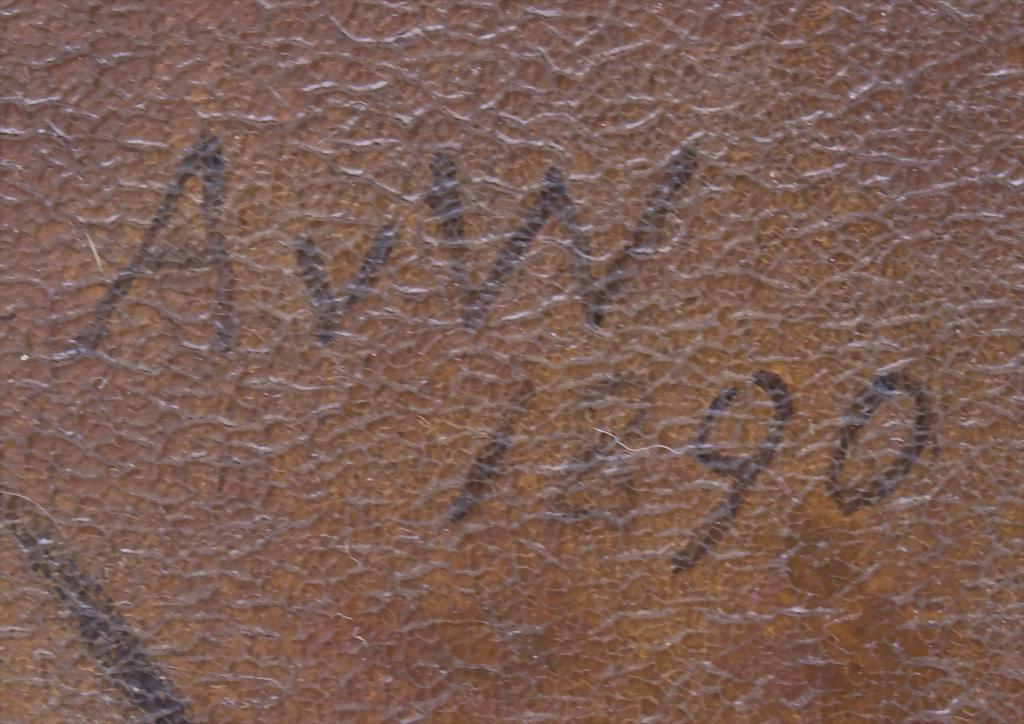 AvW
1890